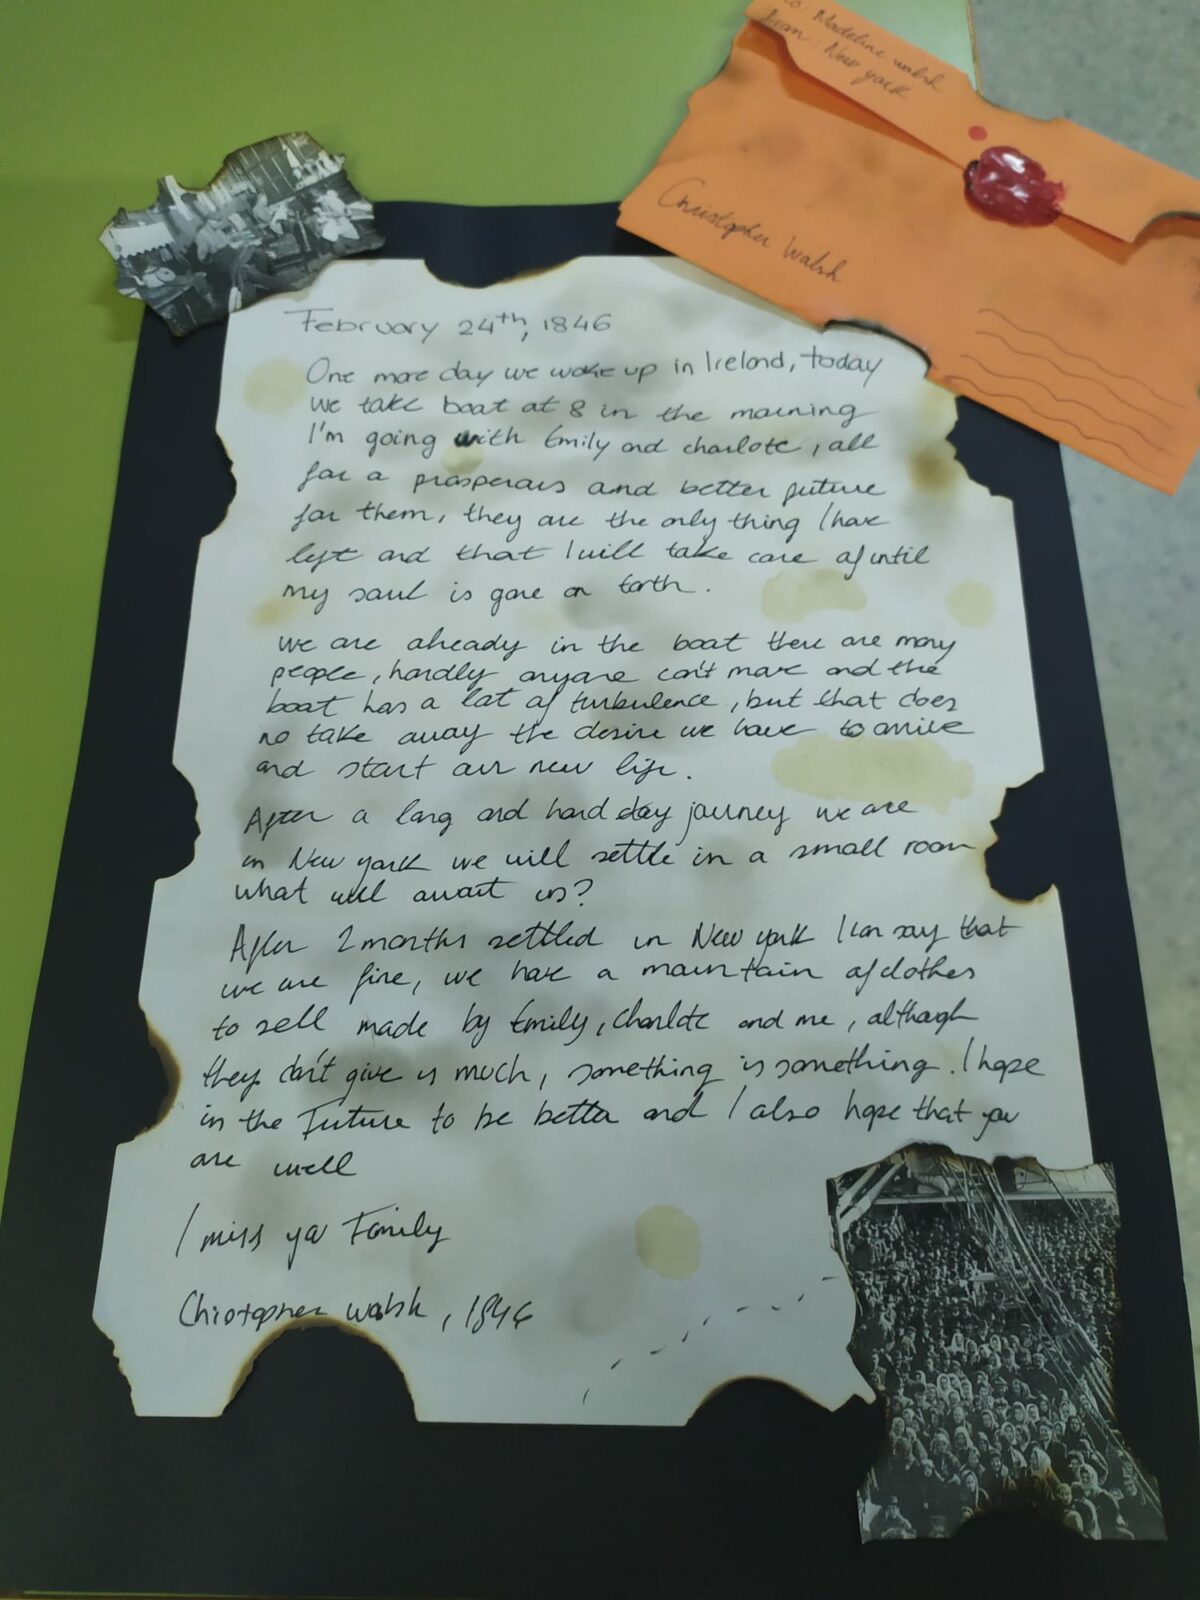 to Madeline Walsh
From New York
Christopher Walsh
February 24th, 1846
One more day we woke up in Ireland, today
we take boat at 8 in the morning
I'm going with Emily and charlote, all
for a prosperous and better future
for them, they are the only thing I have
left and that I will take care of until
my soul is gone on Earth.
we are already in the boat there are many
people, hardly anyone can't move and the
boat has a lot of turbulence, but that does
no take away the desire we have to arrive
and start our new life.
After a long and hard day journey we are
in New york we will settle in a small room
what will await us?
After 2 months settled in New york I can say that
we are fine, we have a mountain of clothes
to sell made by Emily, Charlote and me, although
they don't give us much, something is something. I hope
in the Future to be better and I also hope that you
are well
I miss you Family
Christopher walsh, 1846